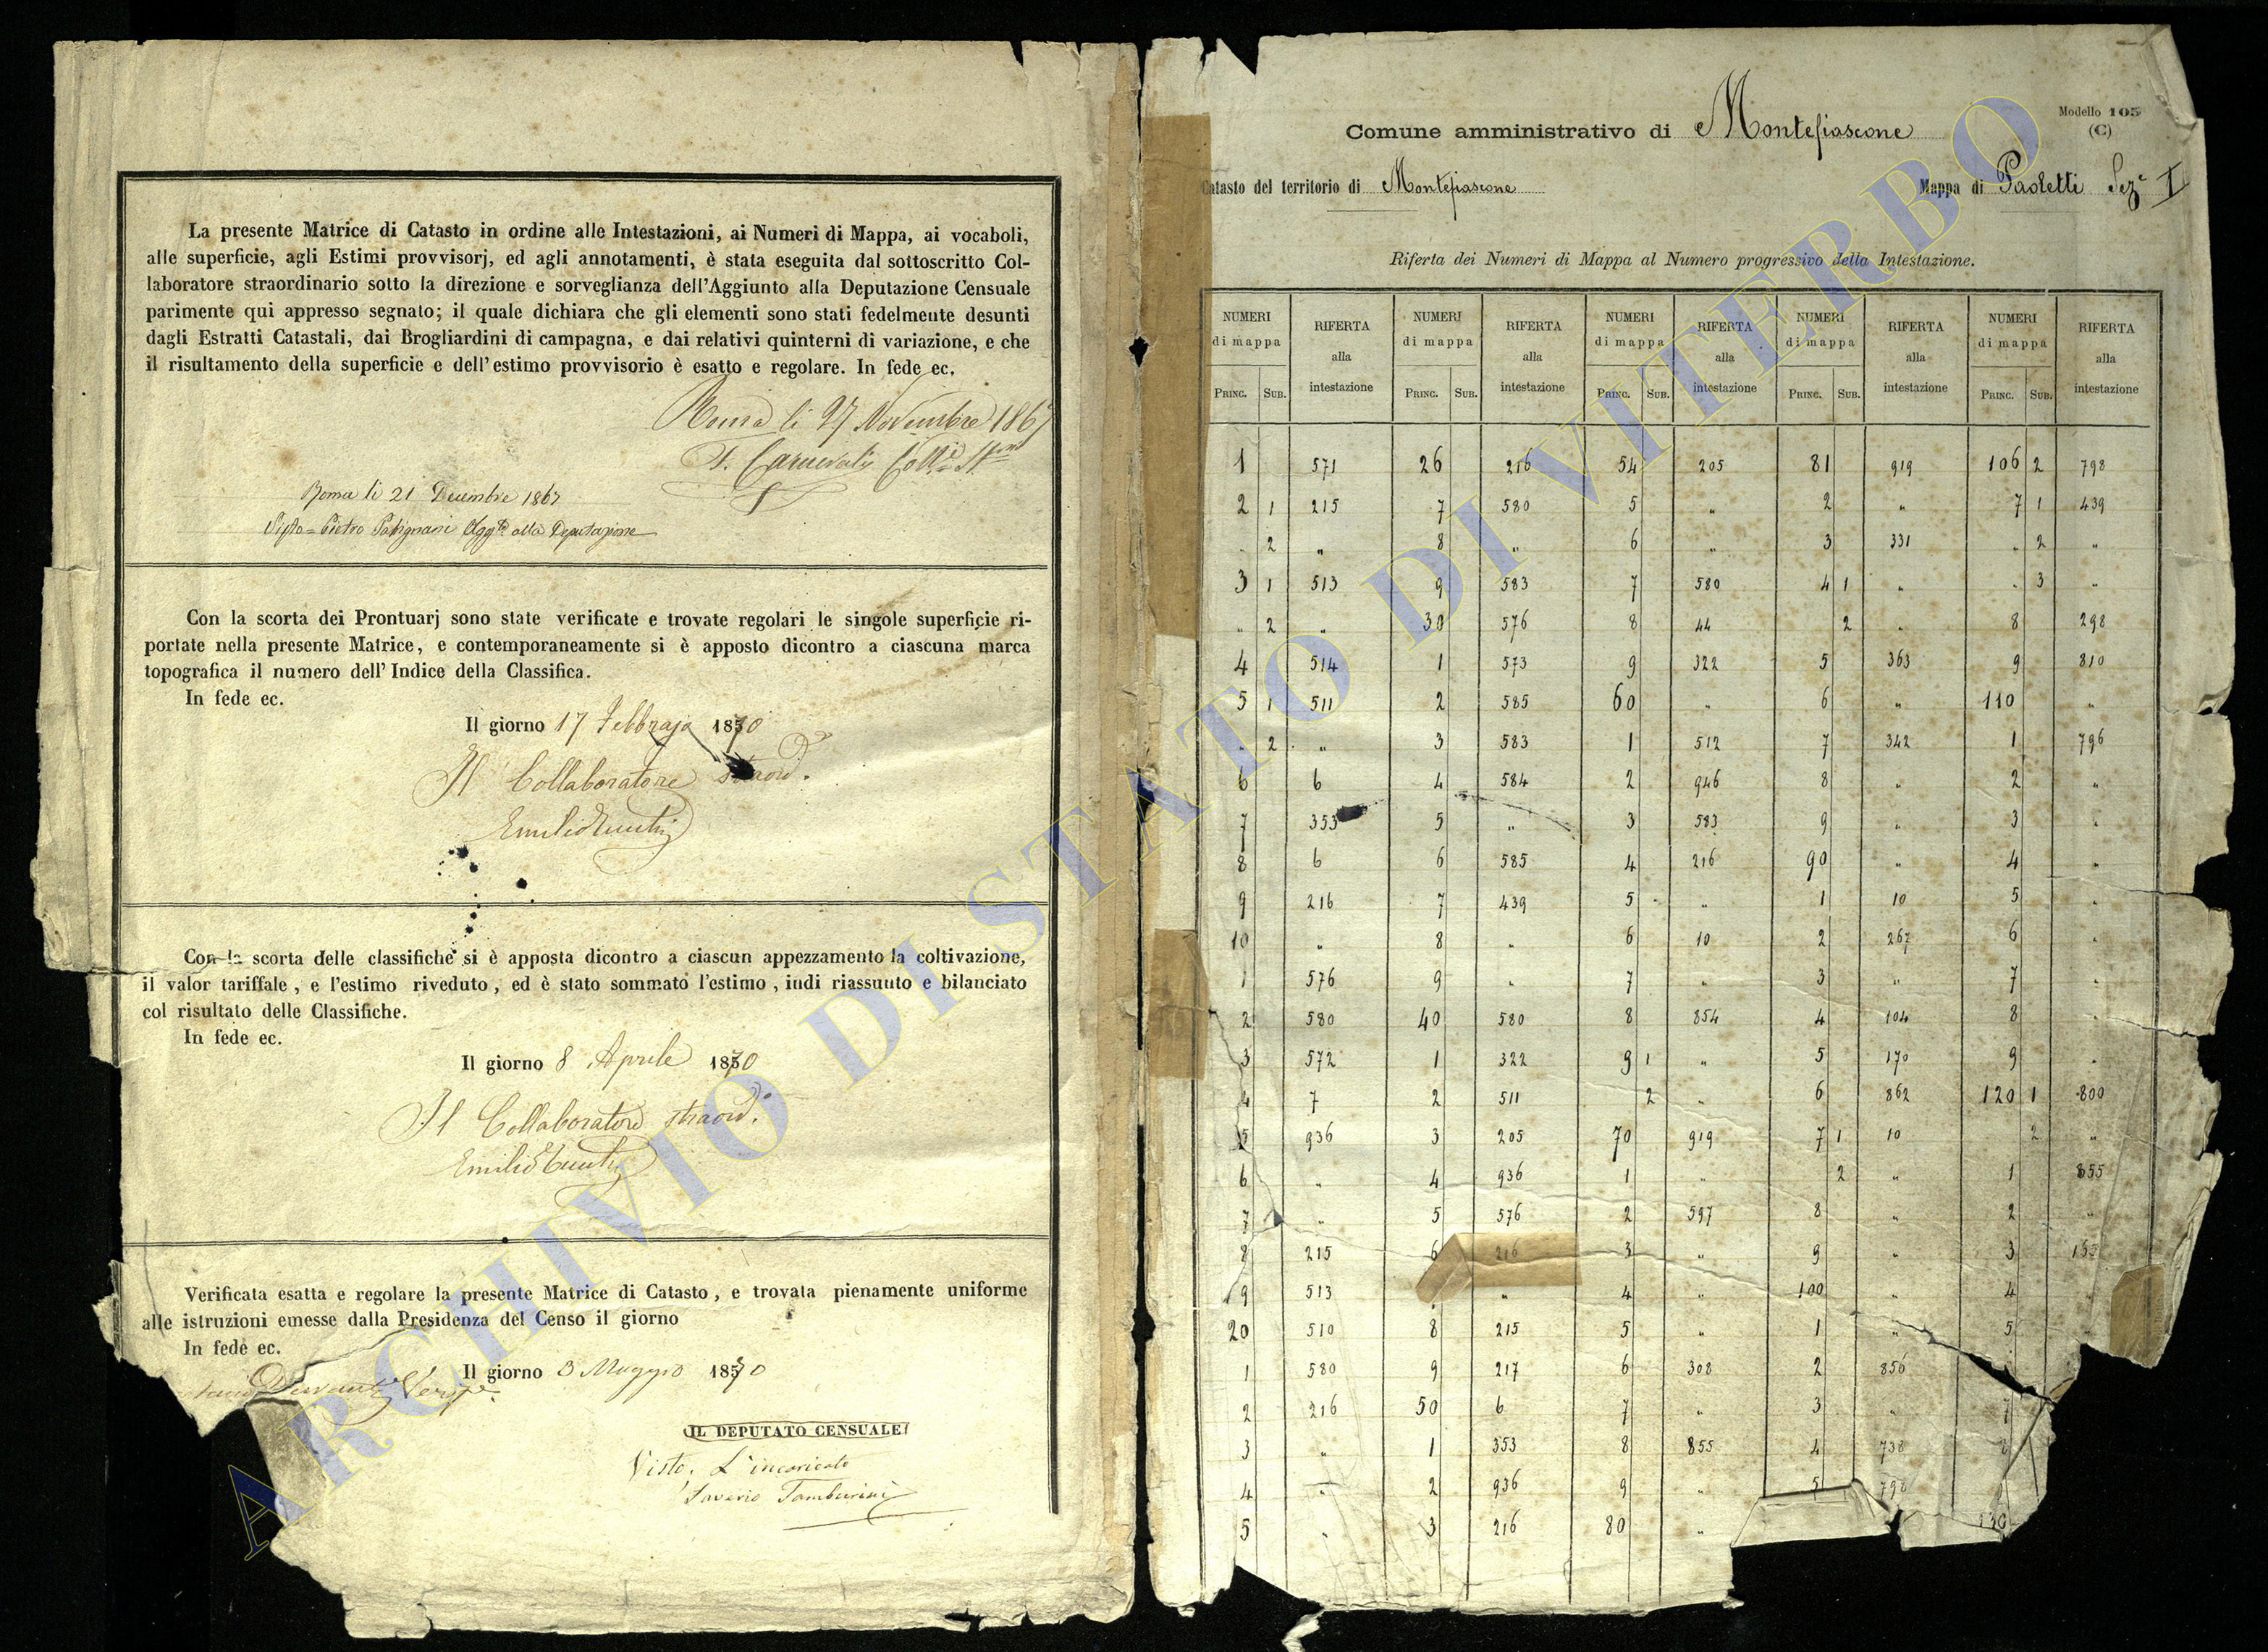 La presente Matrice di Catasto in ordine alle Intestazioni, ai Numeri di Mappa, ai vocaboli,
alle superficie, agli Estimi provvisorj, ed agli annotamenti, è stata eseguita dal sottoscritto Col-
laboratore straordinario sotto la direzione e sorveglianza dell'Aggiunto alla Deputazione Censuale
parimente qui appresso segnato; il quale dichiara che gli elementi sono stati fedelmente desunti
dagli Estratti Catastali, dai Brogliardini di campagna, e dai relativi quinterni di variazione, e che
il risultamento della superficie e dell'estimo provvisorio è esatto e regolare. In fede ec.
Roma li 27 Novembre 1867
Roma li 21 Decembre 1867
Visto = Pietro alla Deputazione
Con la scorta dei Prontuarj sono state verificate e trovate regolari le singole superficie ri-
portate nella presente Matrice, e contemporaneamente si è apposto dicontro a ciascuna marca
topografica il numero dell'Indice della Classifica.
In fede ec.
Il giorno 17 Febbrajo 1870
Il Collaboratore straord.
Emilio
Con la scorta delle classifiche si è apposta dicontro a ciascun appezzamento la coltivazione,
il valor tariffale, e l'estimo riveduto, ed è stato sommato l'estimo, indi riassunto e bilanciato
col risultato delle Classifiche.
In fede ec.
Il giorno 8 Aprile 1870
Il Collaboratore straord.
Emilio
Verificata esatta e regolare la presente Matrice di Catasto, e trovata pienamente uniforme
alle istruzioni emesse dalla Presidenza del Censo il giorno
In fede ec.
Il giorno 3 Maggio 1870
IL DEPUTATO CENSUALE
Visto. L'incaricato
Saverio Tamburini
Modello 105
(C)
Comune amministrativo di Montefiascone
Catasto del territorio di Montefiascone Mappa di Paoletti Sez.e I
Riferta dei Numeri di Mappa al Numero progressivo della Intestazione.
NUMERI di mappa RIFERTA alla intestazione NUMERI di mappa RIFERTA alla intestazione NUMERI di mappa RIFERTA alla intestazione NUMERI di mappa RIFERTA alla intestazione NUMERI di mappa RIFERTA alla intestazione
PRINC. SUB. PRINC. SUB. PRINC. SUB. PRINC. SUB. PRINC. SUB.
1 571 26 216 54 205 81 919 106 2 798
2 1 215 7 580 5 " 2 " 7 1 439
" 2 " 8 " 6 " 3 331 " 2 "
3 1 513 9 583 7 580 4 1 " " 3 "
" 2 " 30 576 8 44 2 " 8 298
4 514 1 573 9 322 5 363 9 810
5 1 511 2 585 60 " 6 " 110 "
" 2 " 3 583 1 512 7 342 1 796
6 6 4 584 2 946 8 " 2 "
7 353 5 " 3 583 9 " 3 "
8 6 6 585 4 216 90 " 4 "
9 216 7 439 5 " 1 10 5 "
10 " 8 " 6 10 2 267 6 "
1 576 9 " 7 " 3 " 7 "
2 580 40 580 8 854 4 104 8 "
3 572 1 322 9 1 " 5 170 9 "
4 7 2 511 2 " 6 862 120 1 800
5 936 3 205 70 919 7 1 10 2 "
6 " 4 936 1 " 2 " 1 855
7 " 5 576 2 597 8 " 2 "
8 215 6 216 3 " 9 " 3
9 513 " 4 " 100 " 4
20 510 8 215 5 " 1 " 5 "
1 580 9 217 6 308 2 856
2 216 50 6 7 " 3 " 7
3 " 1 353 8 855 4 738
4 " 2 936 9 " 5 798
5 " 3 216 80 " 130
ARCHIVIO DI STATO DI VITERBO